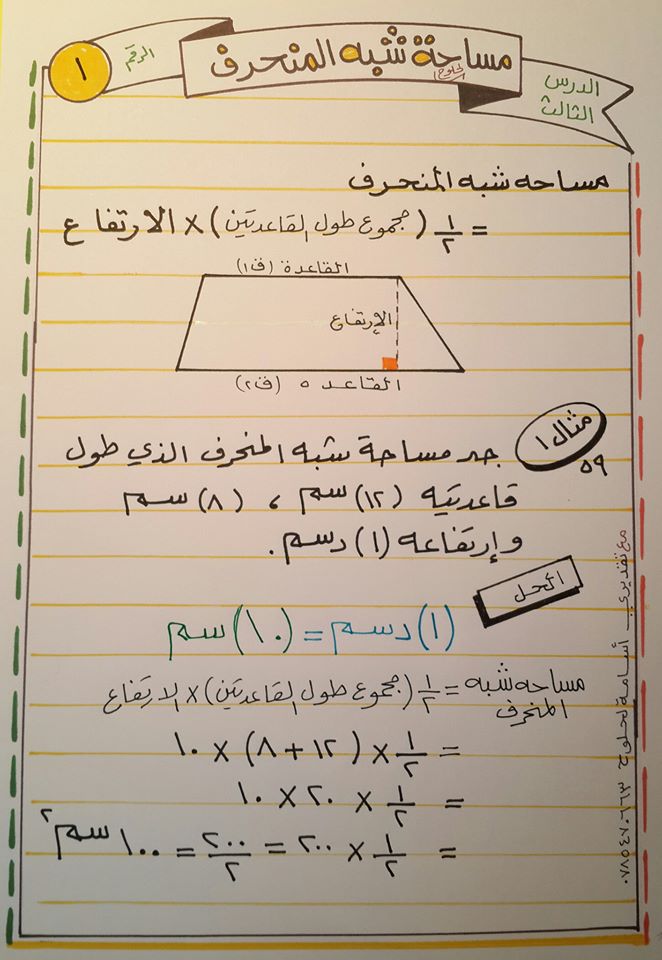 الرقم
١
مساحة شبه المنحرف
لحلوح
الدرس
الثالث
مساحه شبه المنحرف
= ١/٢ (مجموع طول القاعدتين) × الارتفاع
القاعدة (ق١)
الإرتفاع
القاعده (ق٢)
مثال ١
٥٩
جد مساحة شبه المنحرف الذي طول
قاعدتيه (١٢) سم ، (٨) سم
وإرتفاعه (١) دسم.
الحل
(١) دسم = (١٠) سم
مساحه شبه المنحرف = ١/٢ (مجموع طول القاعدتين) × الارتفاع
= ١/٢ × (١٢ + ٨) × ١٠
= ١/٢ × ٢٠ × ١٠
= ١/٢ × ٢٠٠ = ٢٠٠/٢ = ١٠٠ سم٢
مع تقديري أسامة لحلوح ٠٧٨٥٤٧٠٦٦٣